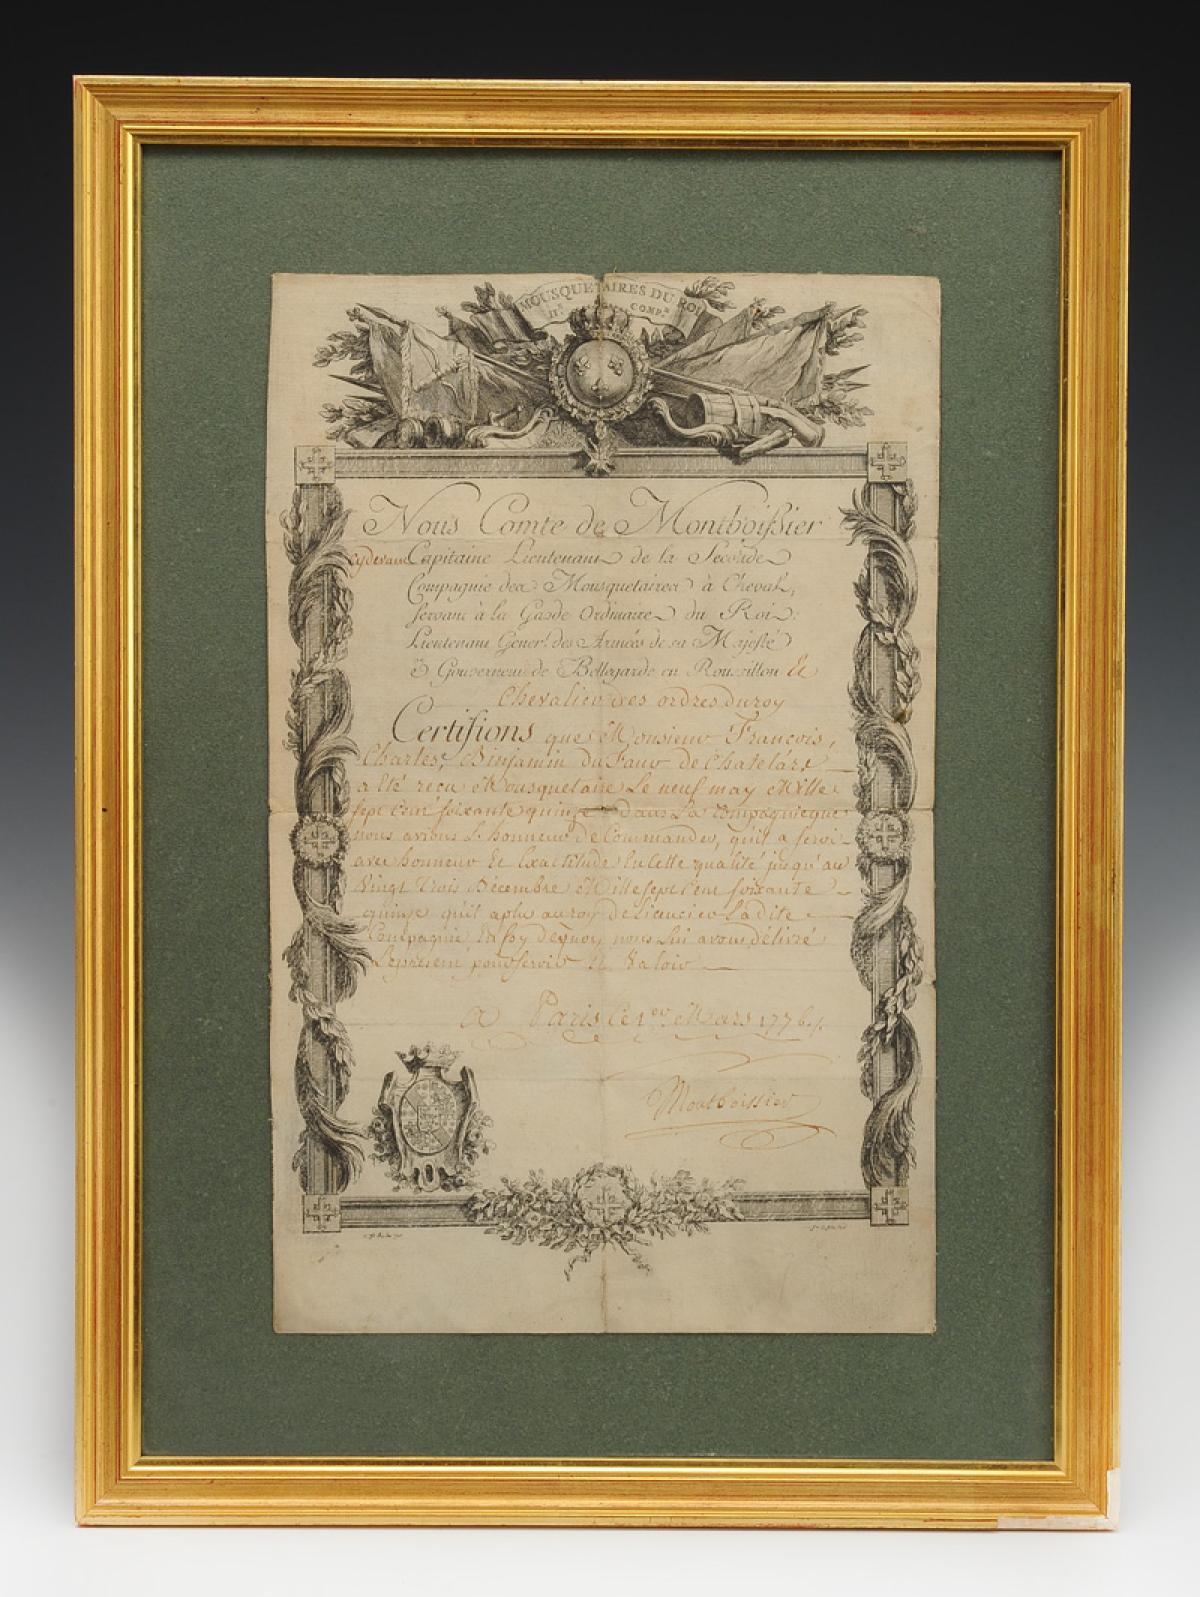 MOUSQUETAIRES DU ROI
II.e COMP.e
Nous Comte de Montboissier
cydevant Capitaine Lieutenant de la Seconde
Compagnie des Mousquetaires à Cheval,
servant à la Garde Ordinaire du Roi,
Lieutenant Géner.l des Armées de sa Majesté
& Gouverneur de Bellegarde en Roussillon Et
Chevalier des ordres du roy
Certifions que Monsieur François,
Charles, Binjamin du Faur de Chatelárs
a Eté reçu Mousquetaire Le neuf may Mille
sept Cent soixante quinze dans La Compagnie que
nous avions L'honneur de Commander, qu'il a servi
avec honneur Et Exactitude En cette qualité jusqu'au
Vingt Trois Décembre Mille sept Cent soixante
quinze qu'il a plu au roy de Licencier Ladite
Compagnie En foy de quoy nous lui avons délivré
Le present pour servir Et Valoir
A Paris Ce 1er Mars 1776.
Montboissier